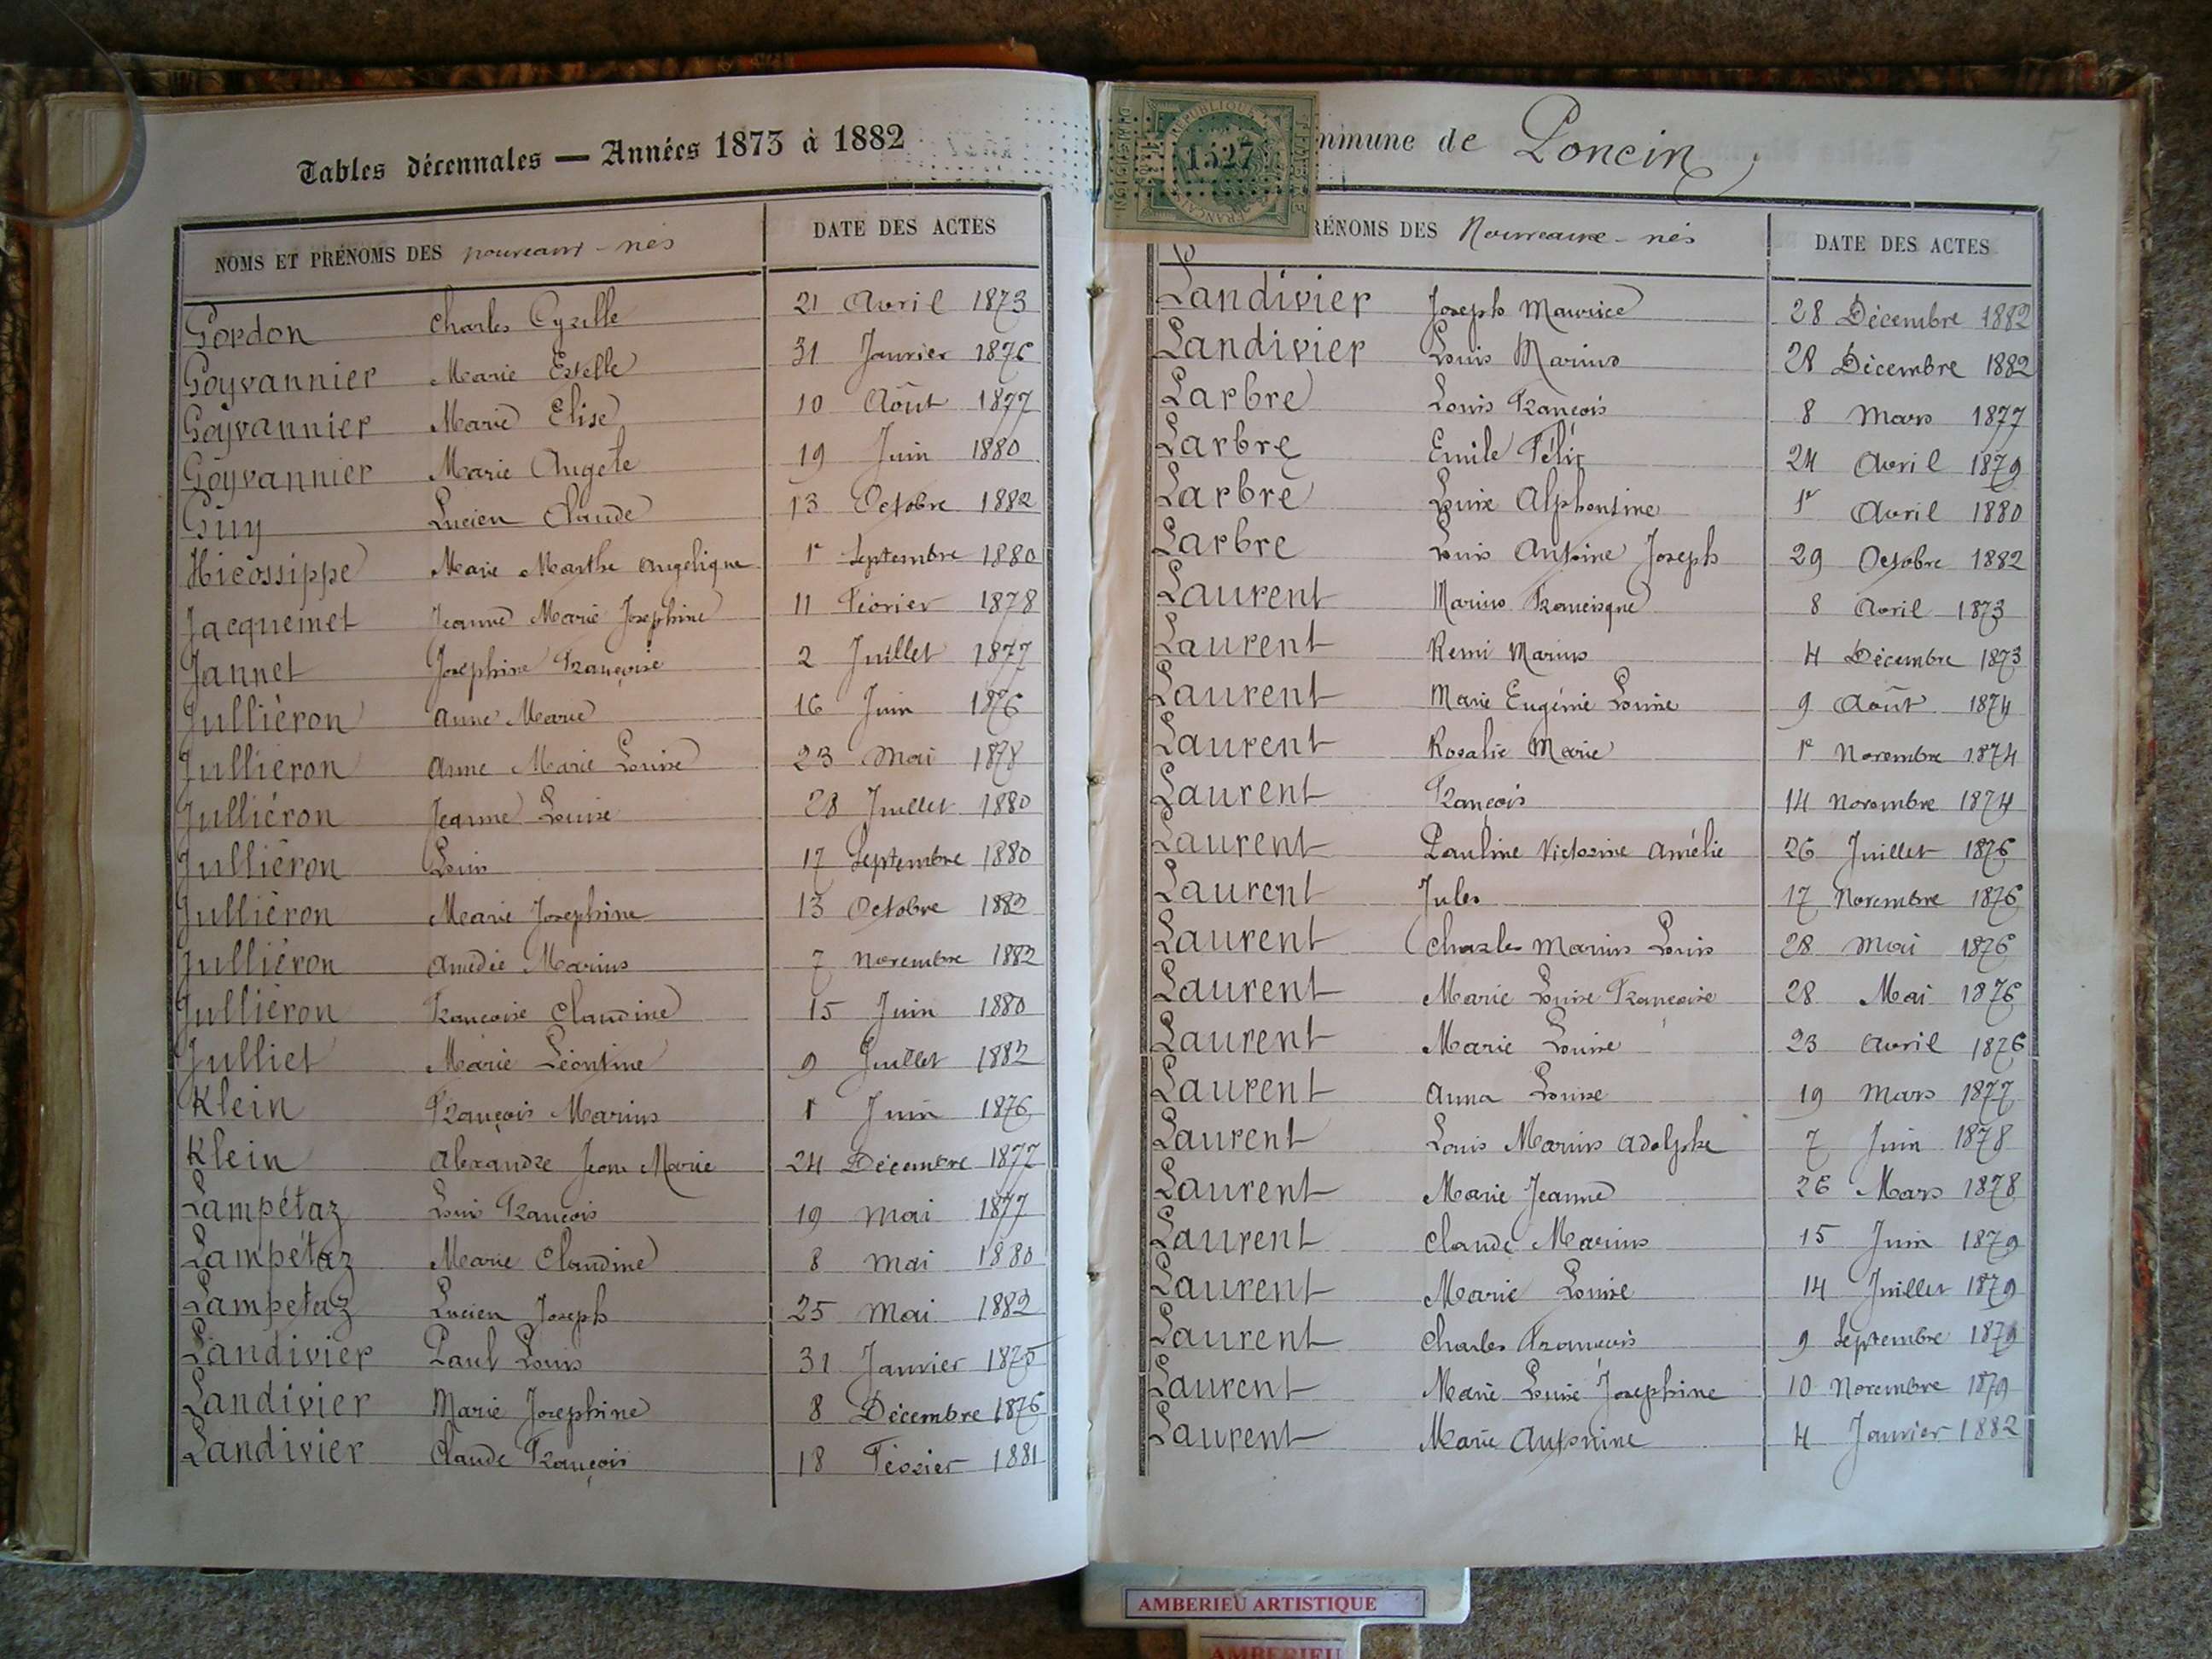 Tables décennales — Années 1873 à 1882
NOMS ET PRÉNOMS DES nouveaux-nés DATE DES ACTES
Gordon Charles Cyrille 21 Avril 1873
Goyvannier Marie Estelle 31 Janvier 1876
Goyvannier Marie Elise 10 Août 1877
Goyvannier Marie Angele 19 Juin 1880
Guy Lucien Claude 13 Octobre 1882
Hicossippe Marie Marthe Angelique 1r Septembre 1880
Jacquemet Jeanne Marie Josephine 11 Février 1878
Jannet Josephine Françoise 2 Juillet 1877
Julliéron Anne Marie 16 Juin 1876
Julliéron Anne Marie Louise 23 Mai 1878
Julliéron Jeanne Louise 28 Juillet 1880
Julliéron Louis 17 Septembre 1880
Julliéron Marie Josephine 13 Octobre 1882
Julliéron Amédée Marius 7 Novembre 1882
Julliéron Françoise Claudine 15 Juin 1880
Julliet Marie Léontine 9 Juillet 1882
Klein François Marius 1r Juin 1876
Klein Alexandre Jean Marie 24 Décembre 1877
Lampétaz Louis François 19 Mai 1877
Lampétaz Marie Claudine 8 Mai 1880
Lampetaz Lucien Joseph 25 Mai 1882
Landivier Paul Louis 31 Janvier 1875
Landivier Marie Josephine 8 Décembre 1876
Landivier Claude François 18 Février 1881
mmune de Poncin
RÉPUBLIQUE FRANÇAISE
1527
RÉNOMS DES Nouveaux-nés DATE DES ACTES
Landivier Joseph Maurice 28 Décembre 1882
Landivier Louis Marius 28 Décembre 1882
Larbre Louis François 8 Mars 1877
Larbre Emile Félix 24 Avril 1879
Larbre Louise Alphontine 1r Avril 1880
Larbre Louis Antoine Joseph 29 Octobre 1882
Laurent Marius Francisque 8 Avril 1873
Laurent Remi Marius 4 Décembre 1873
Laurent Marie Eugénie Louise 9 Août 1874
Laurent Rosalie Marie 1r Novembre 1874
Laurent François 14 Novembre 1874
Laurent Pauline Victorine Amélie 26 Juillet 1876
Laurent Jules 17 Novembre 1876
Laurent Charles Marius Louis 28 Mai 1876
Laurent Marie Louise Françoise 28 Mai 1876
Laurent Marie Louise 23 Avril 1876
Laurent Anna Louise 19 Mars 1877
Laurent Louis Marius Adolphe 7 Juin 1878
Laurent Marie Jeanne 26 Mars 1878
Laurent Claude Marius 15 Juin 1879
Laurent Marie Louise 14 Juillet 1879
Laurent Charles François 9 Septembre 1879
Laurent Marie Louise Josephine 10 Novembre 1879
Laurent Marie Antonine 4 Janvier 1882
AMBERIEU ARTISTIQUE
AMBERIEU